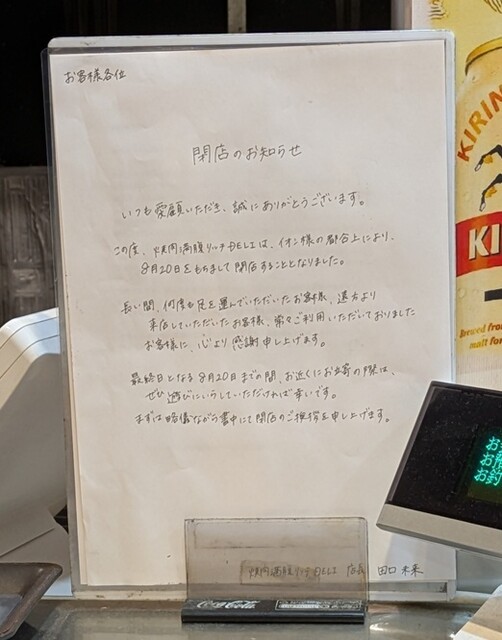 お客様各位
閉店のお知らせ
いつも愛顧いただき、誠にありがとうございます。
この度、焼肉満腹リッチDELIは、イオン様の都合上により、
8月20日をもちまして閉店することとなりました。
長い間、何度も足を運んでいただいたお客様、遠方より
来店していただいたお客様、常々ご利用いただいておりました
お客様に、心より感謝申し上げます。
最終日となる8月20日までの間、お近くにお立寄の際は、
ぜひ遊びにいらしていただければ幸いです。
まずは略儀ながら書中にて閉店のご挨拶を申し上げます。
焼肉満腹リッチDELI 店長 田口
Coca-Cola
KIRIN
KI
Brewed from
malt for
お
お
お釣